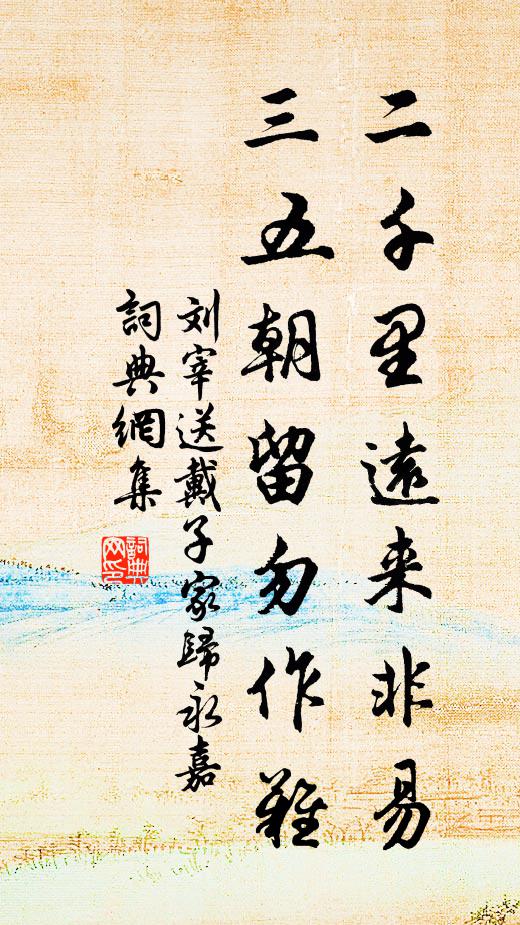 二千里遠来非易
三五朝留勿作難
刘宰送戴子家歸永嘉
詞典網集
詞典网印